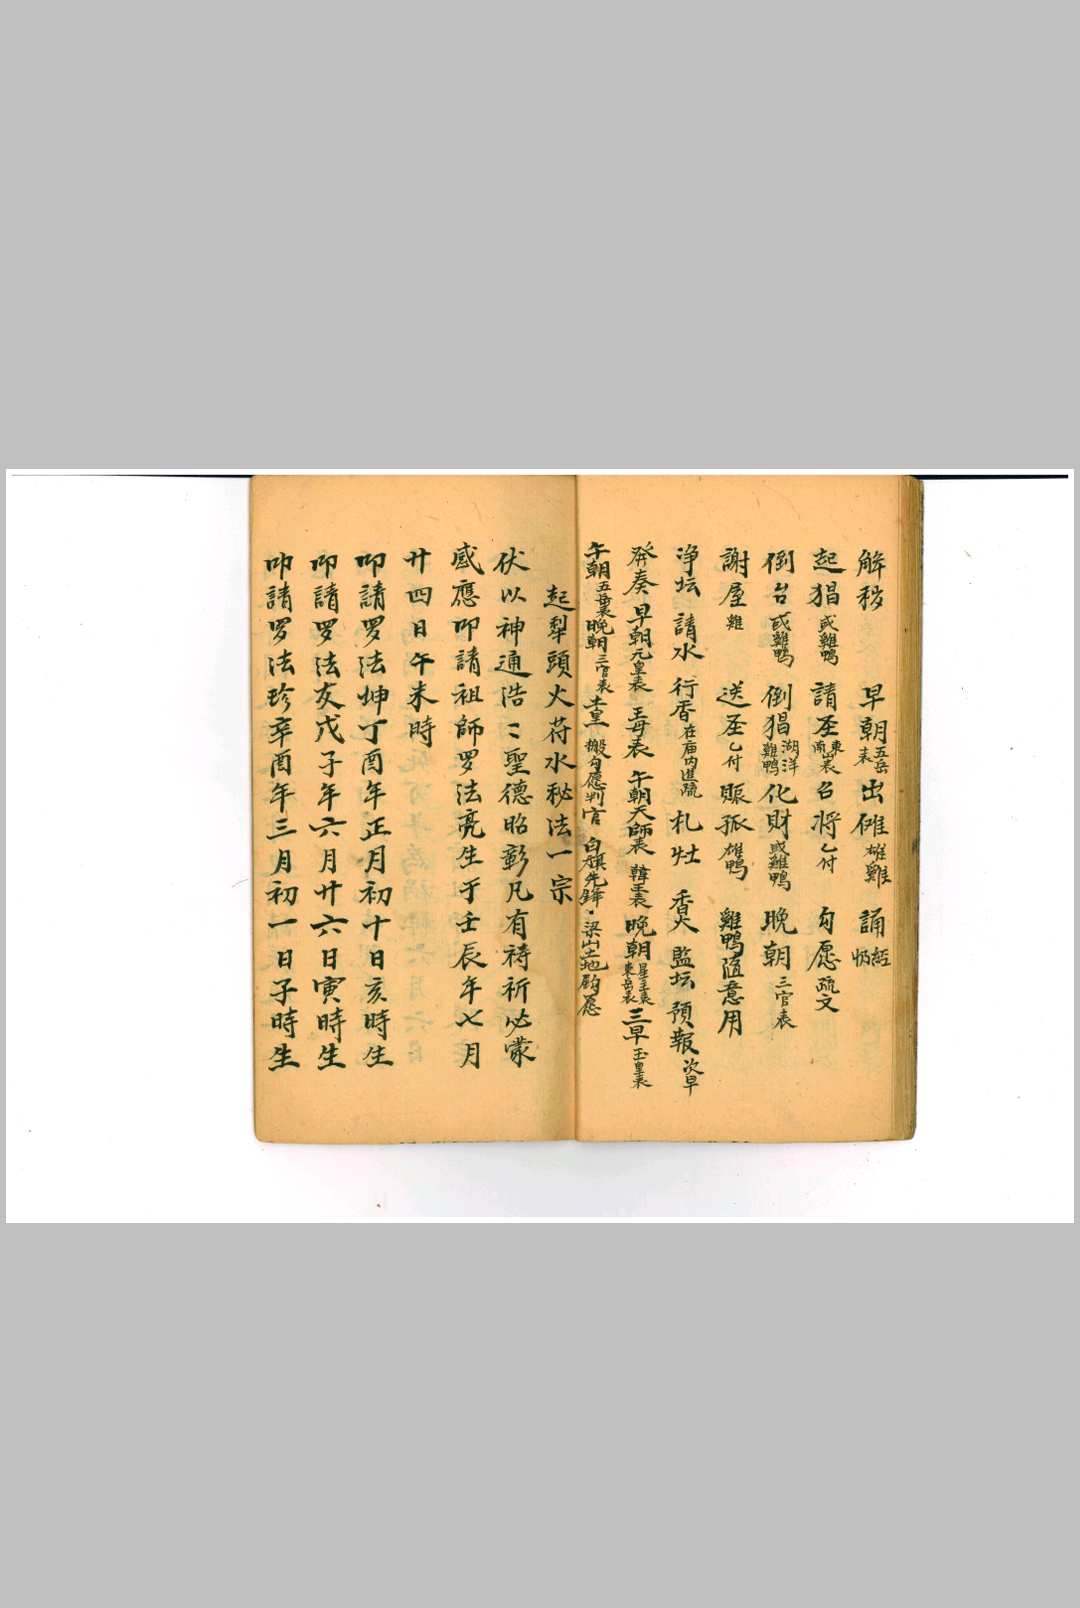 解秽 早朝五岳表 出傩雄雞 誦經
起猖或雞鴨 請圣東嶽表 召将乙付 勾愿疏文
倒台或雞鴨 倒猖湖洋雞鴨 化財或雞鴨 晚朝三官表
謝屋雞 送圣乙付 賑孤雄鴨 雞鴨隨意用
净坛 請水 行香在庙内進疏 札灶 香火 監坛 預報次早
發奏 早朝元皇表 王母表 午朝天師表 韓王表 晚朝星主表東岳表 三早玉皇表
午朝五岳表 晚朝三官表 土皇 搬勾愿判官 白旗先鋒・梁山土地 愿
起犁頭火符水秘法一宗
伏以神通浩〻聖德昭彰凡有祷祈必蒙
感應叩請祖師罗法亮生于壬辰年七月
廿四日午未時
叩請罗法坤丁酉年正月初十日亥時生
叩請罗法友戊子年六月廿六日寅時生
叩請罗法珍辛酉年三月初一日子時生